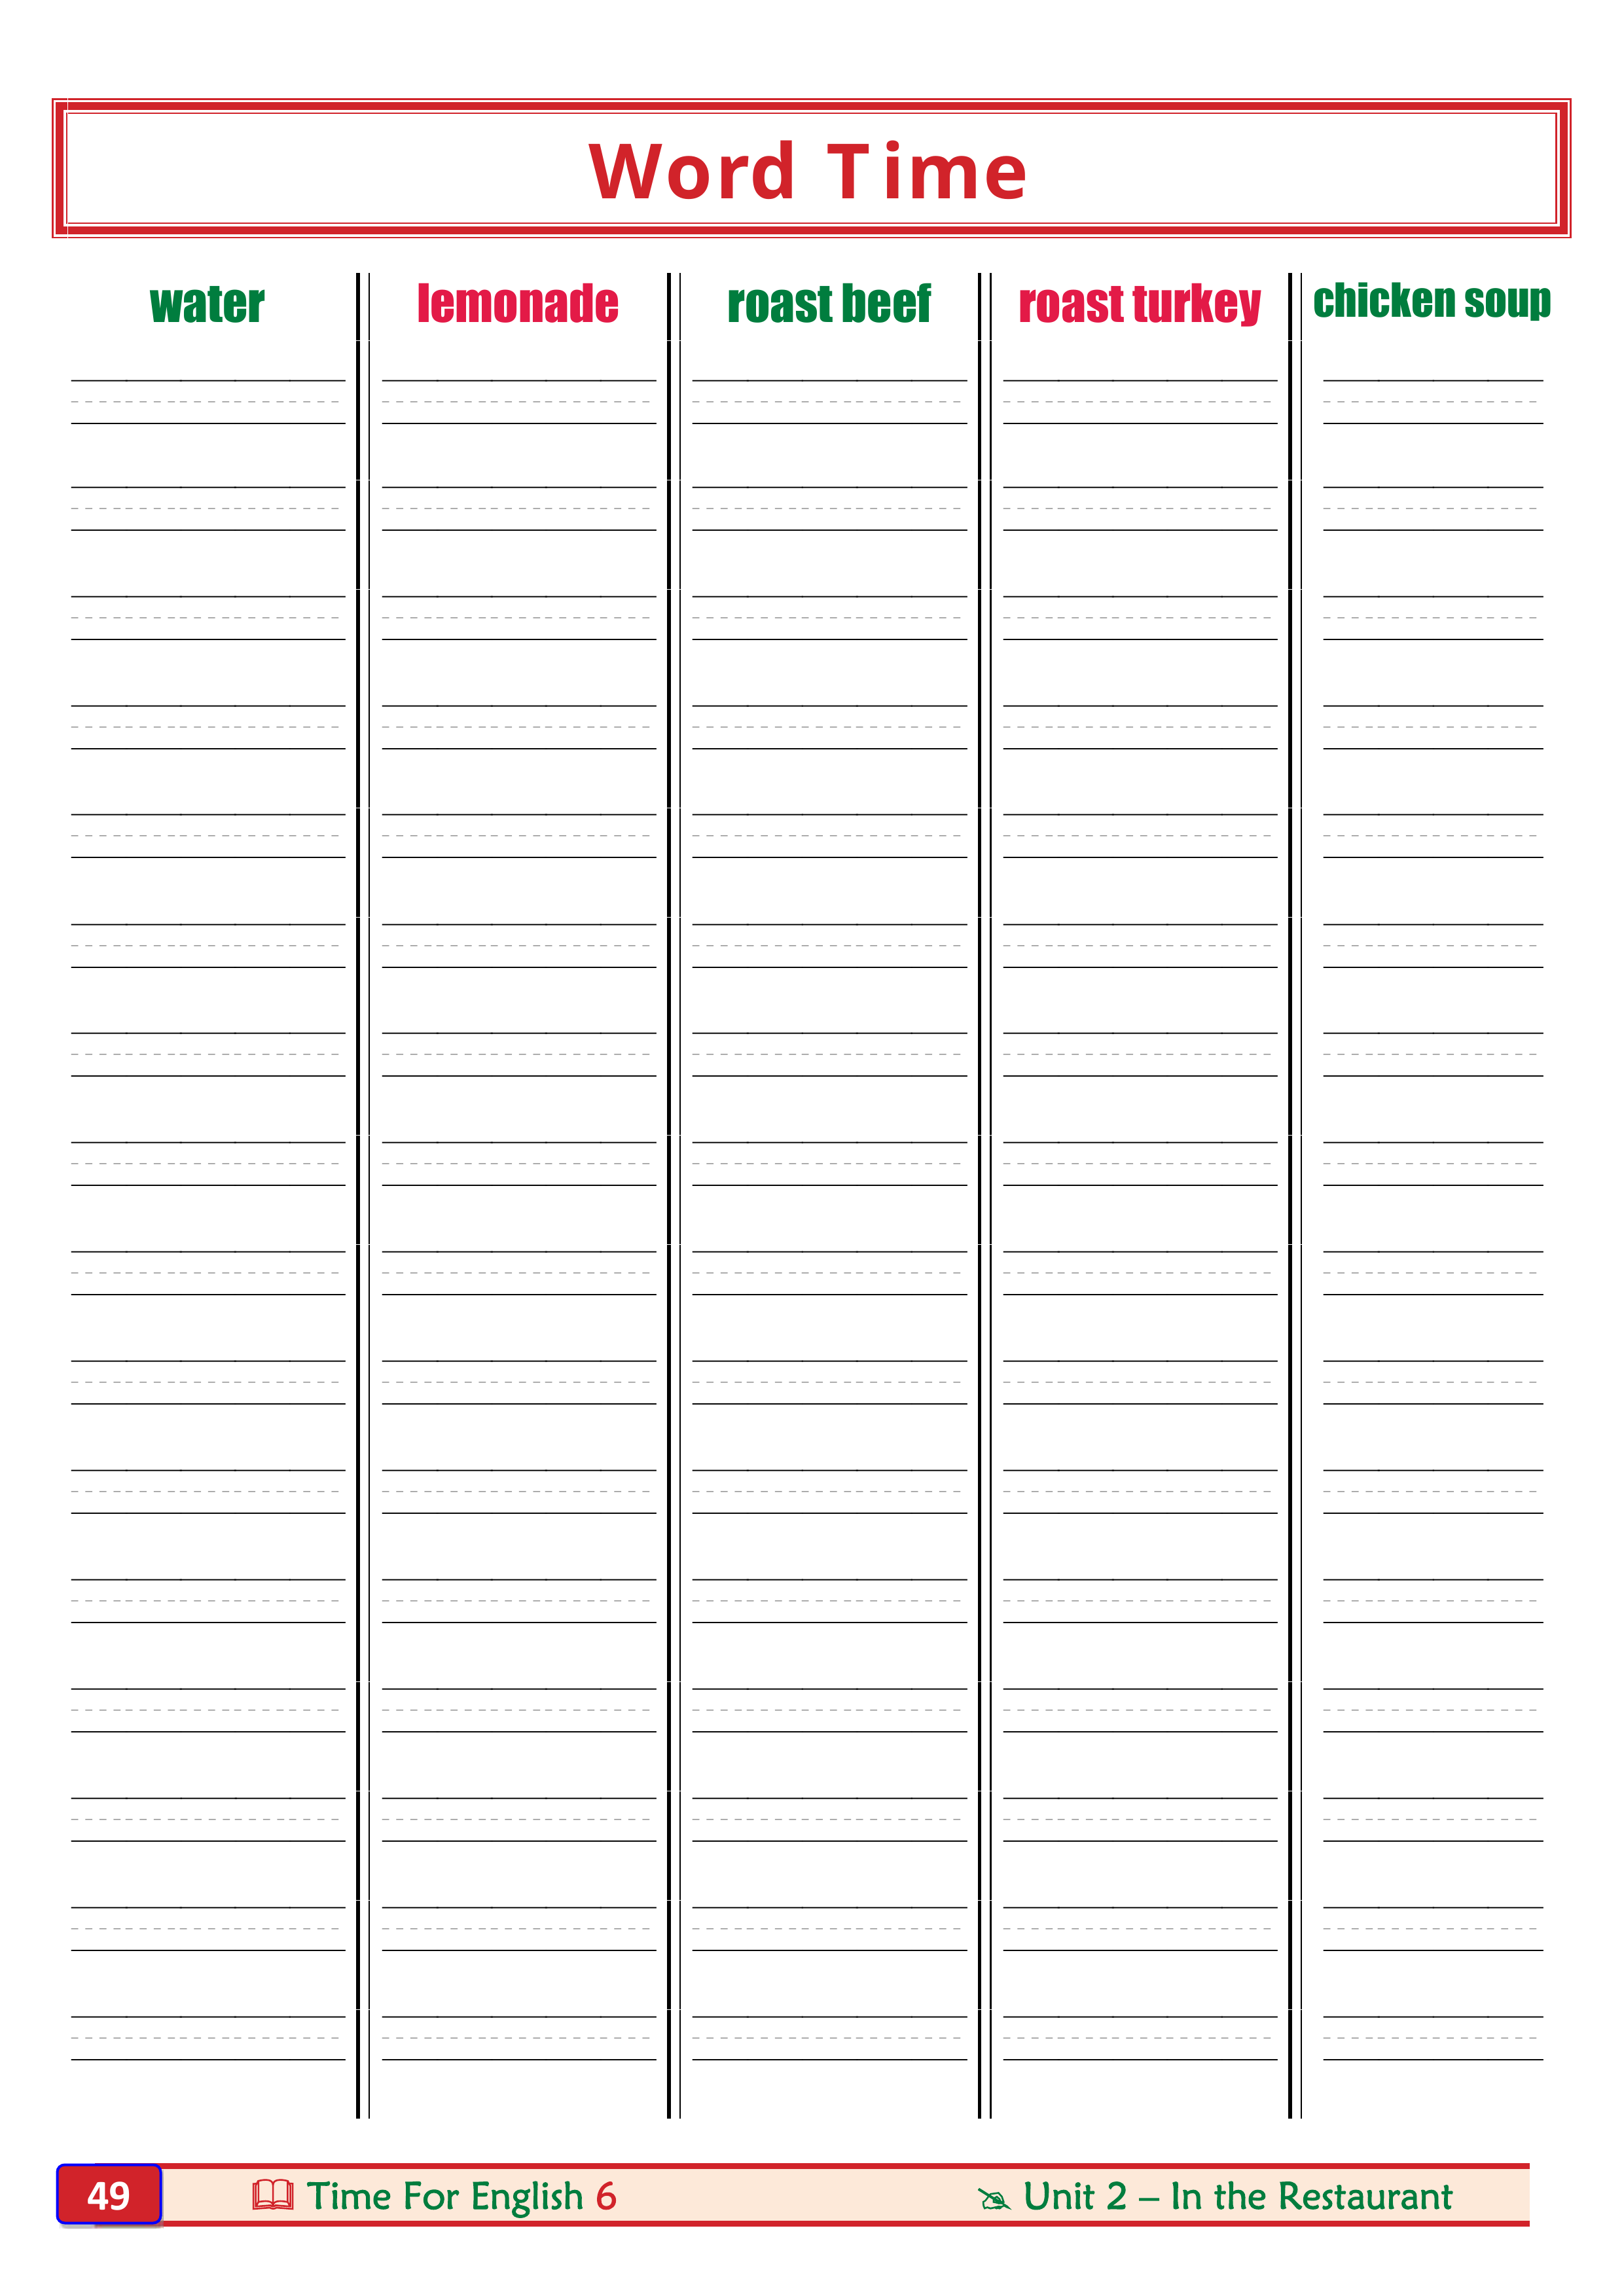 Word Time
water lemonade roast beef roast turkey chicken soup
49 Time For English 6 Unit 2 – In the Restaurant